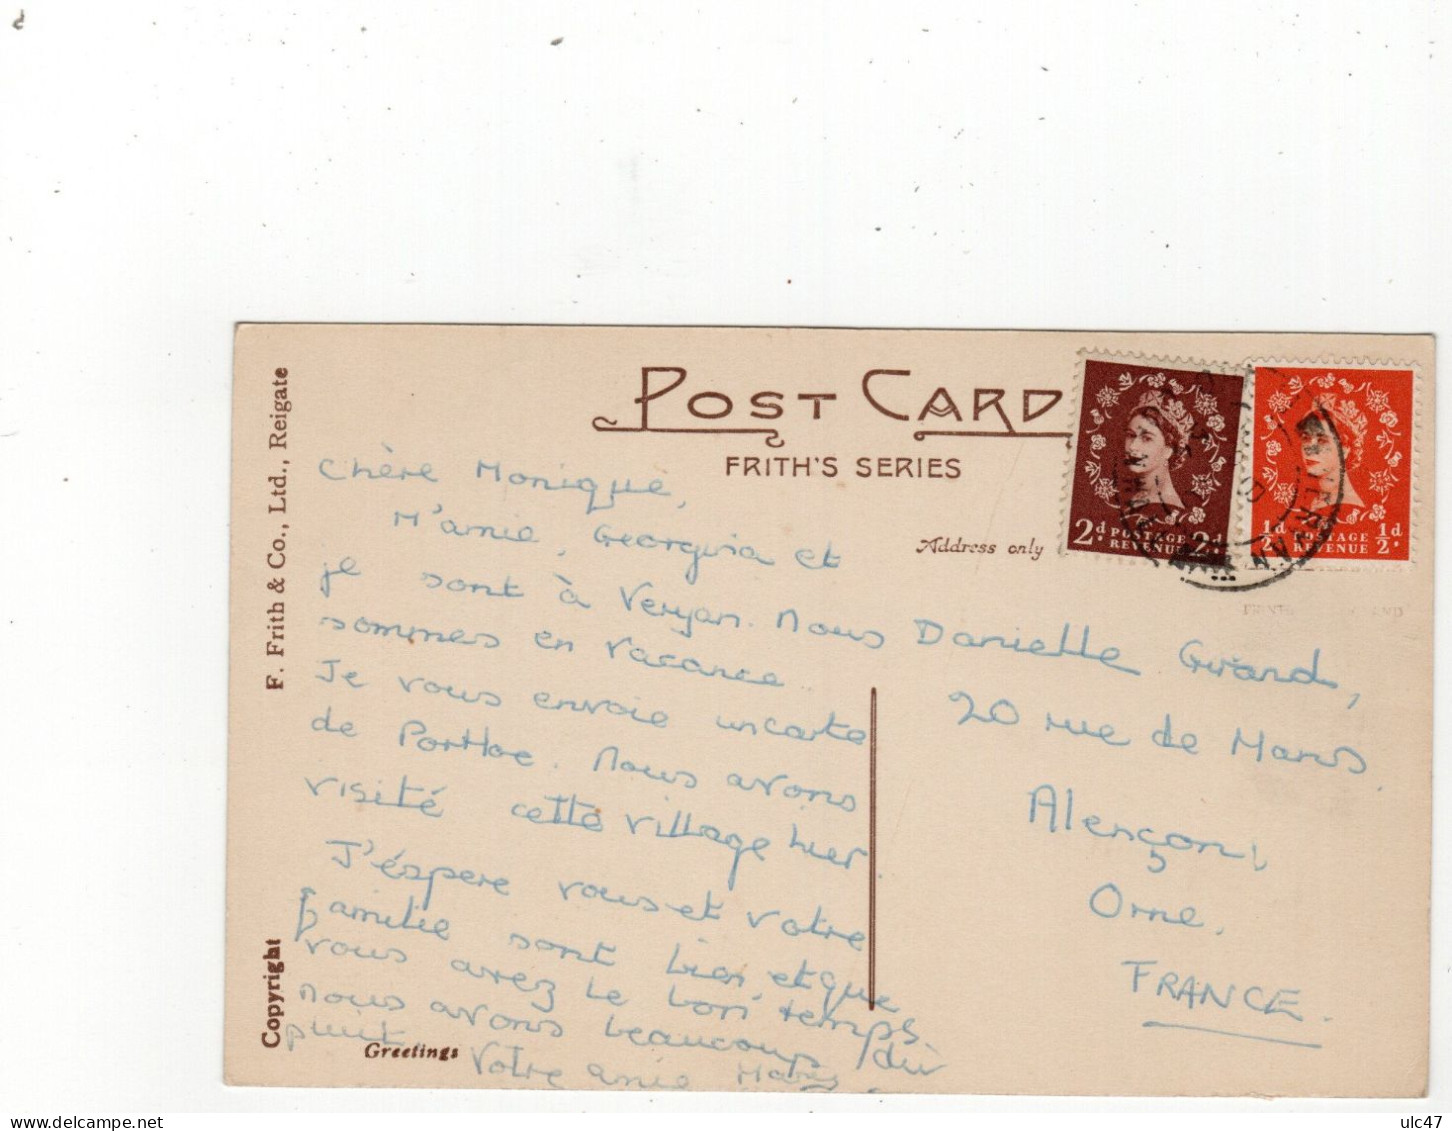 POST CARD
FRITH'S SERIES
Address only
F. Frith & Co., Ltd., Reigate
Copyright
Greetings
2d POSTAGE REVENUE 2d
½d POSTAGE REVENUE ½d
VERYAN
Chère Monique,
M'amie, Georgina et
je sont à Veryan. Nous
sommes en vacance.
Je vous envoie un carte
de Portloe. Nous avons
visité cette village hier.
J'éspere vous et votre
familie sont bien, et que
vous avez le bon temps
nous avons beaucoup du
Votre amie
Danielle Girard,
20 rue de Mans
Alençon,
Orne.
FRANCE.
ulc47